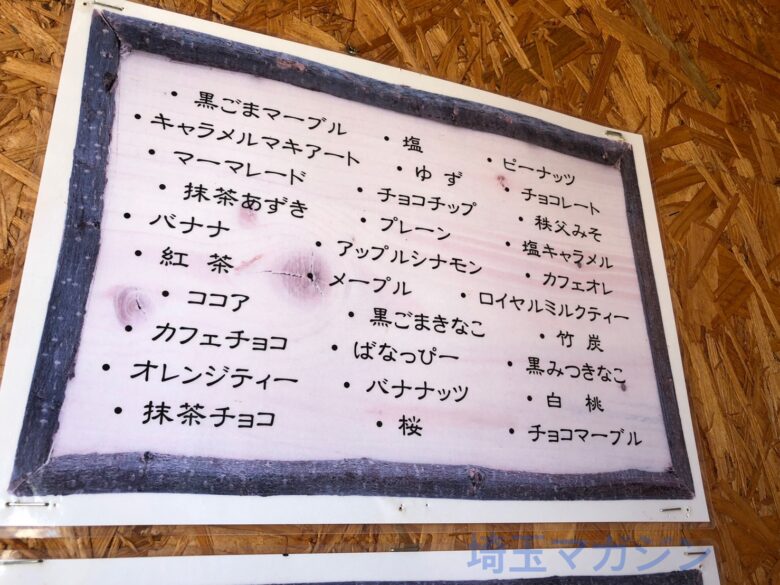 ・黒ごまマーブル
・キャラメルマキアート
・マーマレード
・抹茶あずき
・バナナ
・紅茶
・ココア
・カフェチョコ
・オレンジティー
・抹茶チョコ
・塩
・ゆず
・チョコチップ
・プレーン
・アップルシナモン
・メープル
・黒ごまきなこ
・ばなっぴー
・バナナッツ
・桜
・ピーナッツ
・チョコレート
・秩父みそ
・塩キャラメル
・カフェオレ
・ロイヤルミルクティー
・竹炭
・黒みつきなこ
・白桃
・チョコマーブル
埼玉マガジン